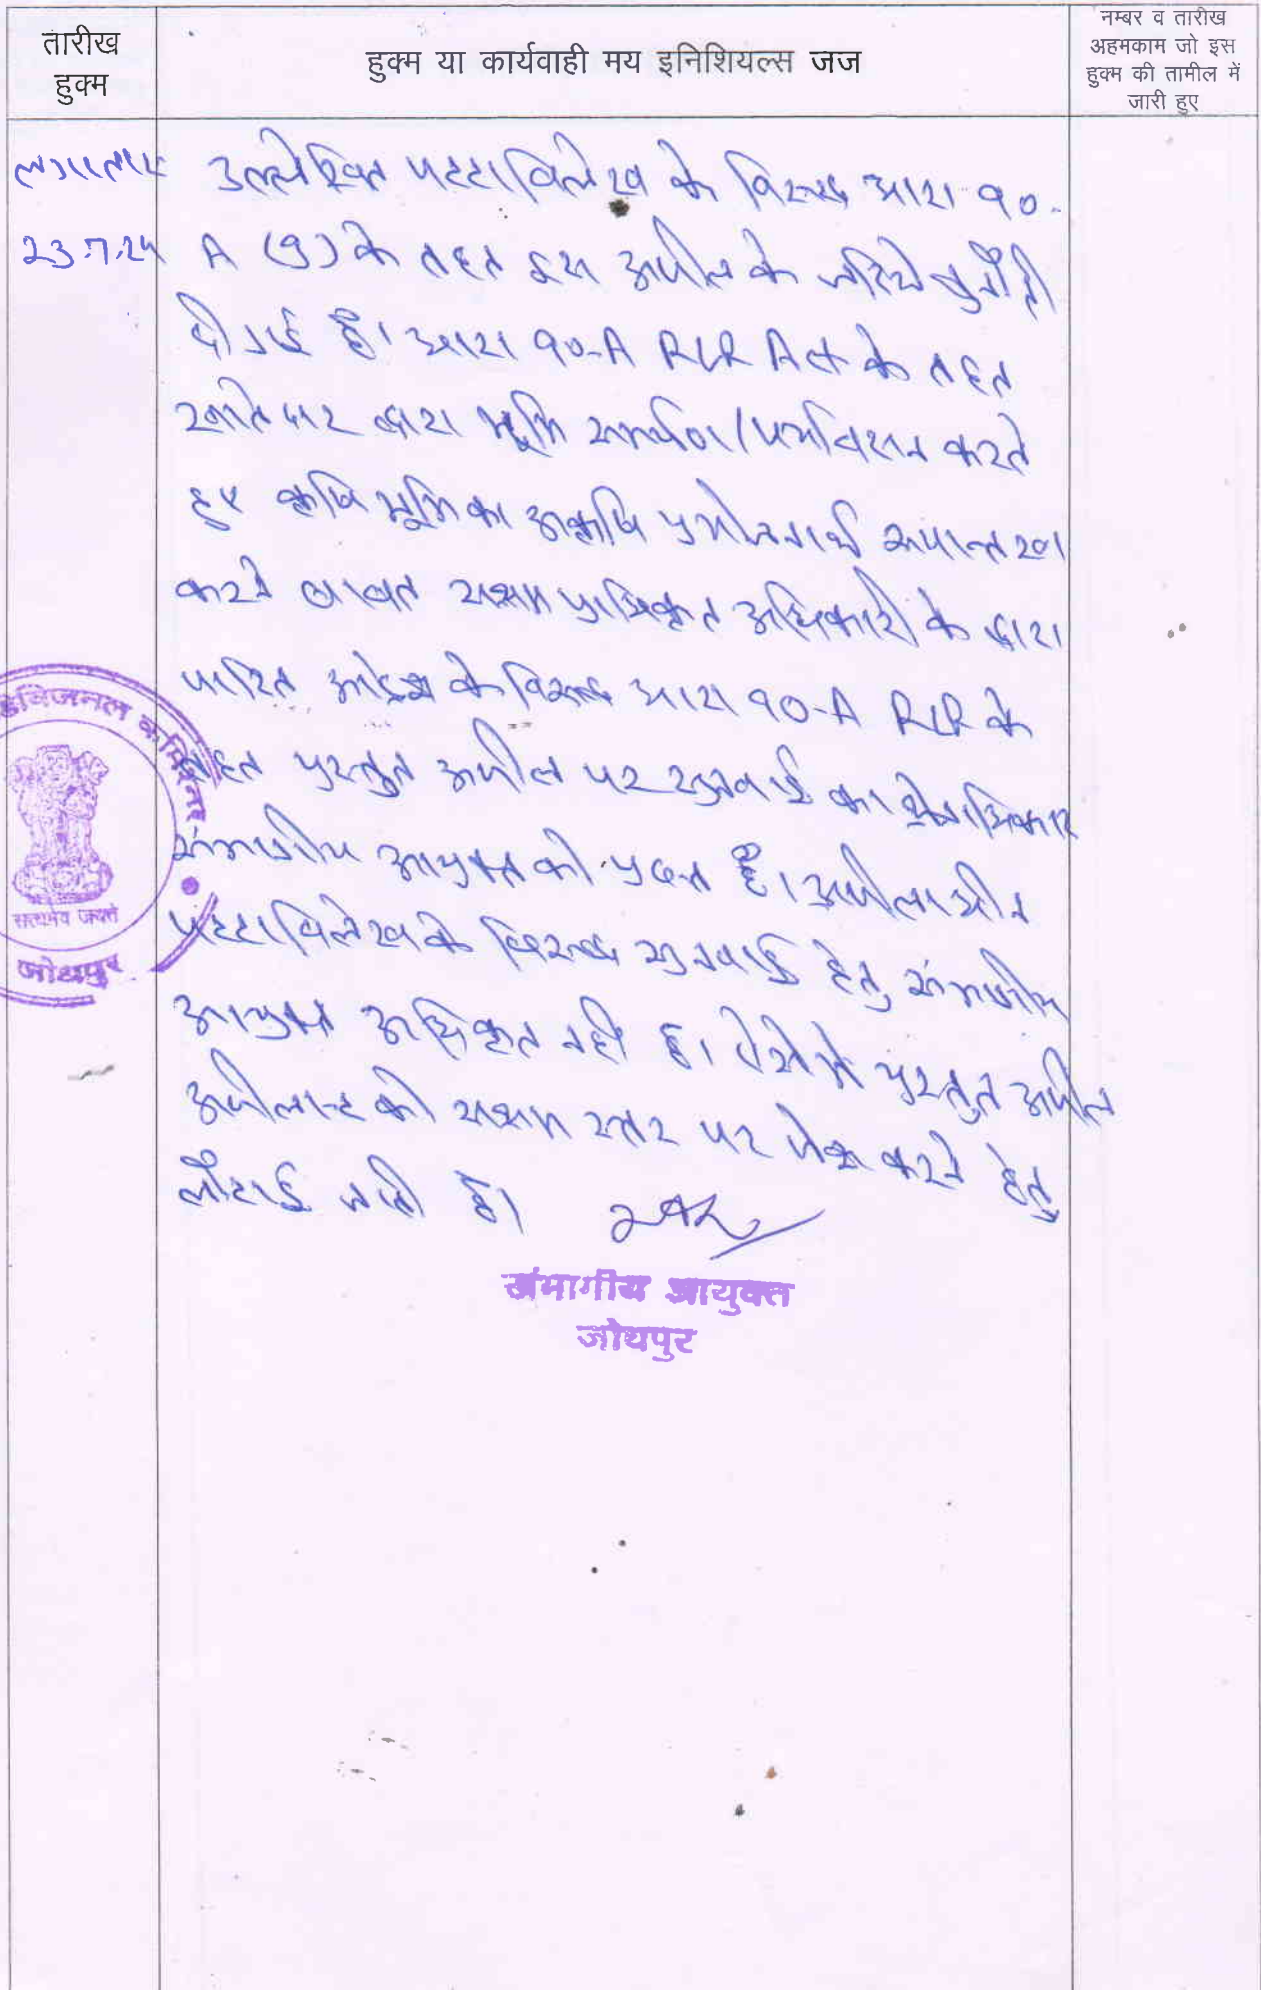 तारीख
हुक्म
हुक्म या कार्यवाही मय इनिशियल्स जज
नम्बर व तारीख
अहमकाम जो इस
हुक्म की तामील में
जारी हुए
लगातार
23.7.24
उल्लेखित पट्टा विलेख के विरूद्ध धारा 90-
A (9) के तहत इस अपील के जरिये चुनौती
दी गई है। धारा 90-A RLR Act के तहत
खातेदार द्वारा भूमि समर्पण/पर्यावसान करते
हुए कृषि भूमि का अकृषि प्रयोजनार्थ रूपान्तरण
करने बाबत सक्षम प्राधिकृत अधिकारी के द्वारा
पारित आदेश के विरूद्ध धारा 90-A RLR के
तहत प्रस्तुत अपील पर सुनवाई का क्षेत्राधिकार
संभागीय आयुक्त को प्रदत्त है। अपीलाधीन
पट्टा विलेख के विरूद्ध सुनवाई हेतु संभागीय
आयुक्त अधिकृत नहीं है। ऐसे में प्रस्तुत अपील
अपीलान्ट को सक्षम स्तर पर पेश करने हेतु
लौटाई जाती है।
संभागीय आयुक्त
जोधपुर
डिविजनल कमिश्नर
सत्यमेव जयते
जोधपुर